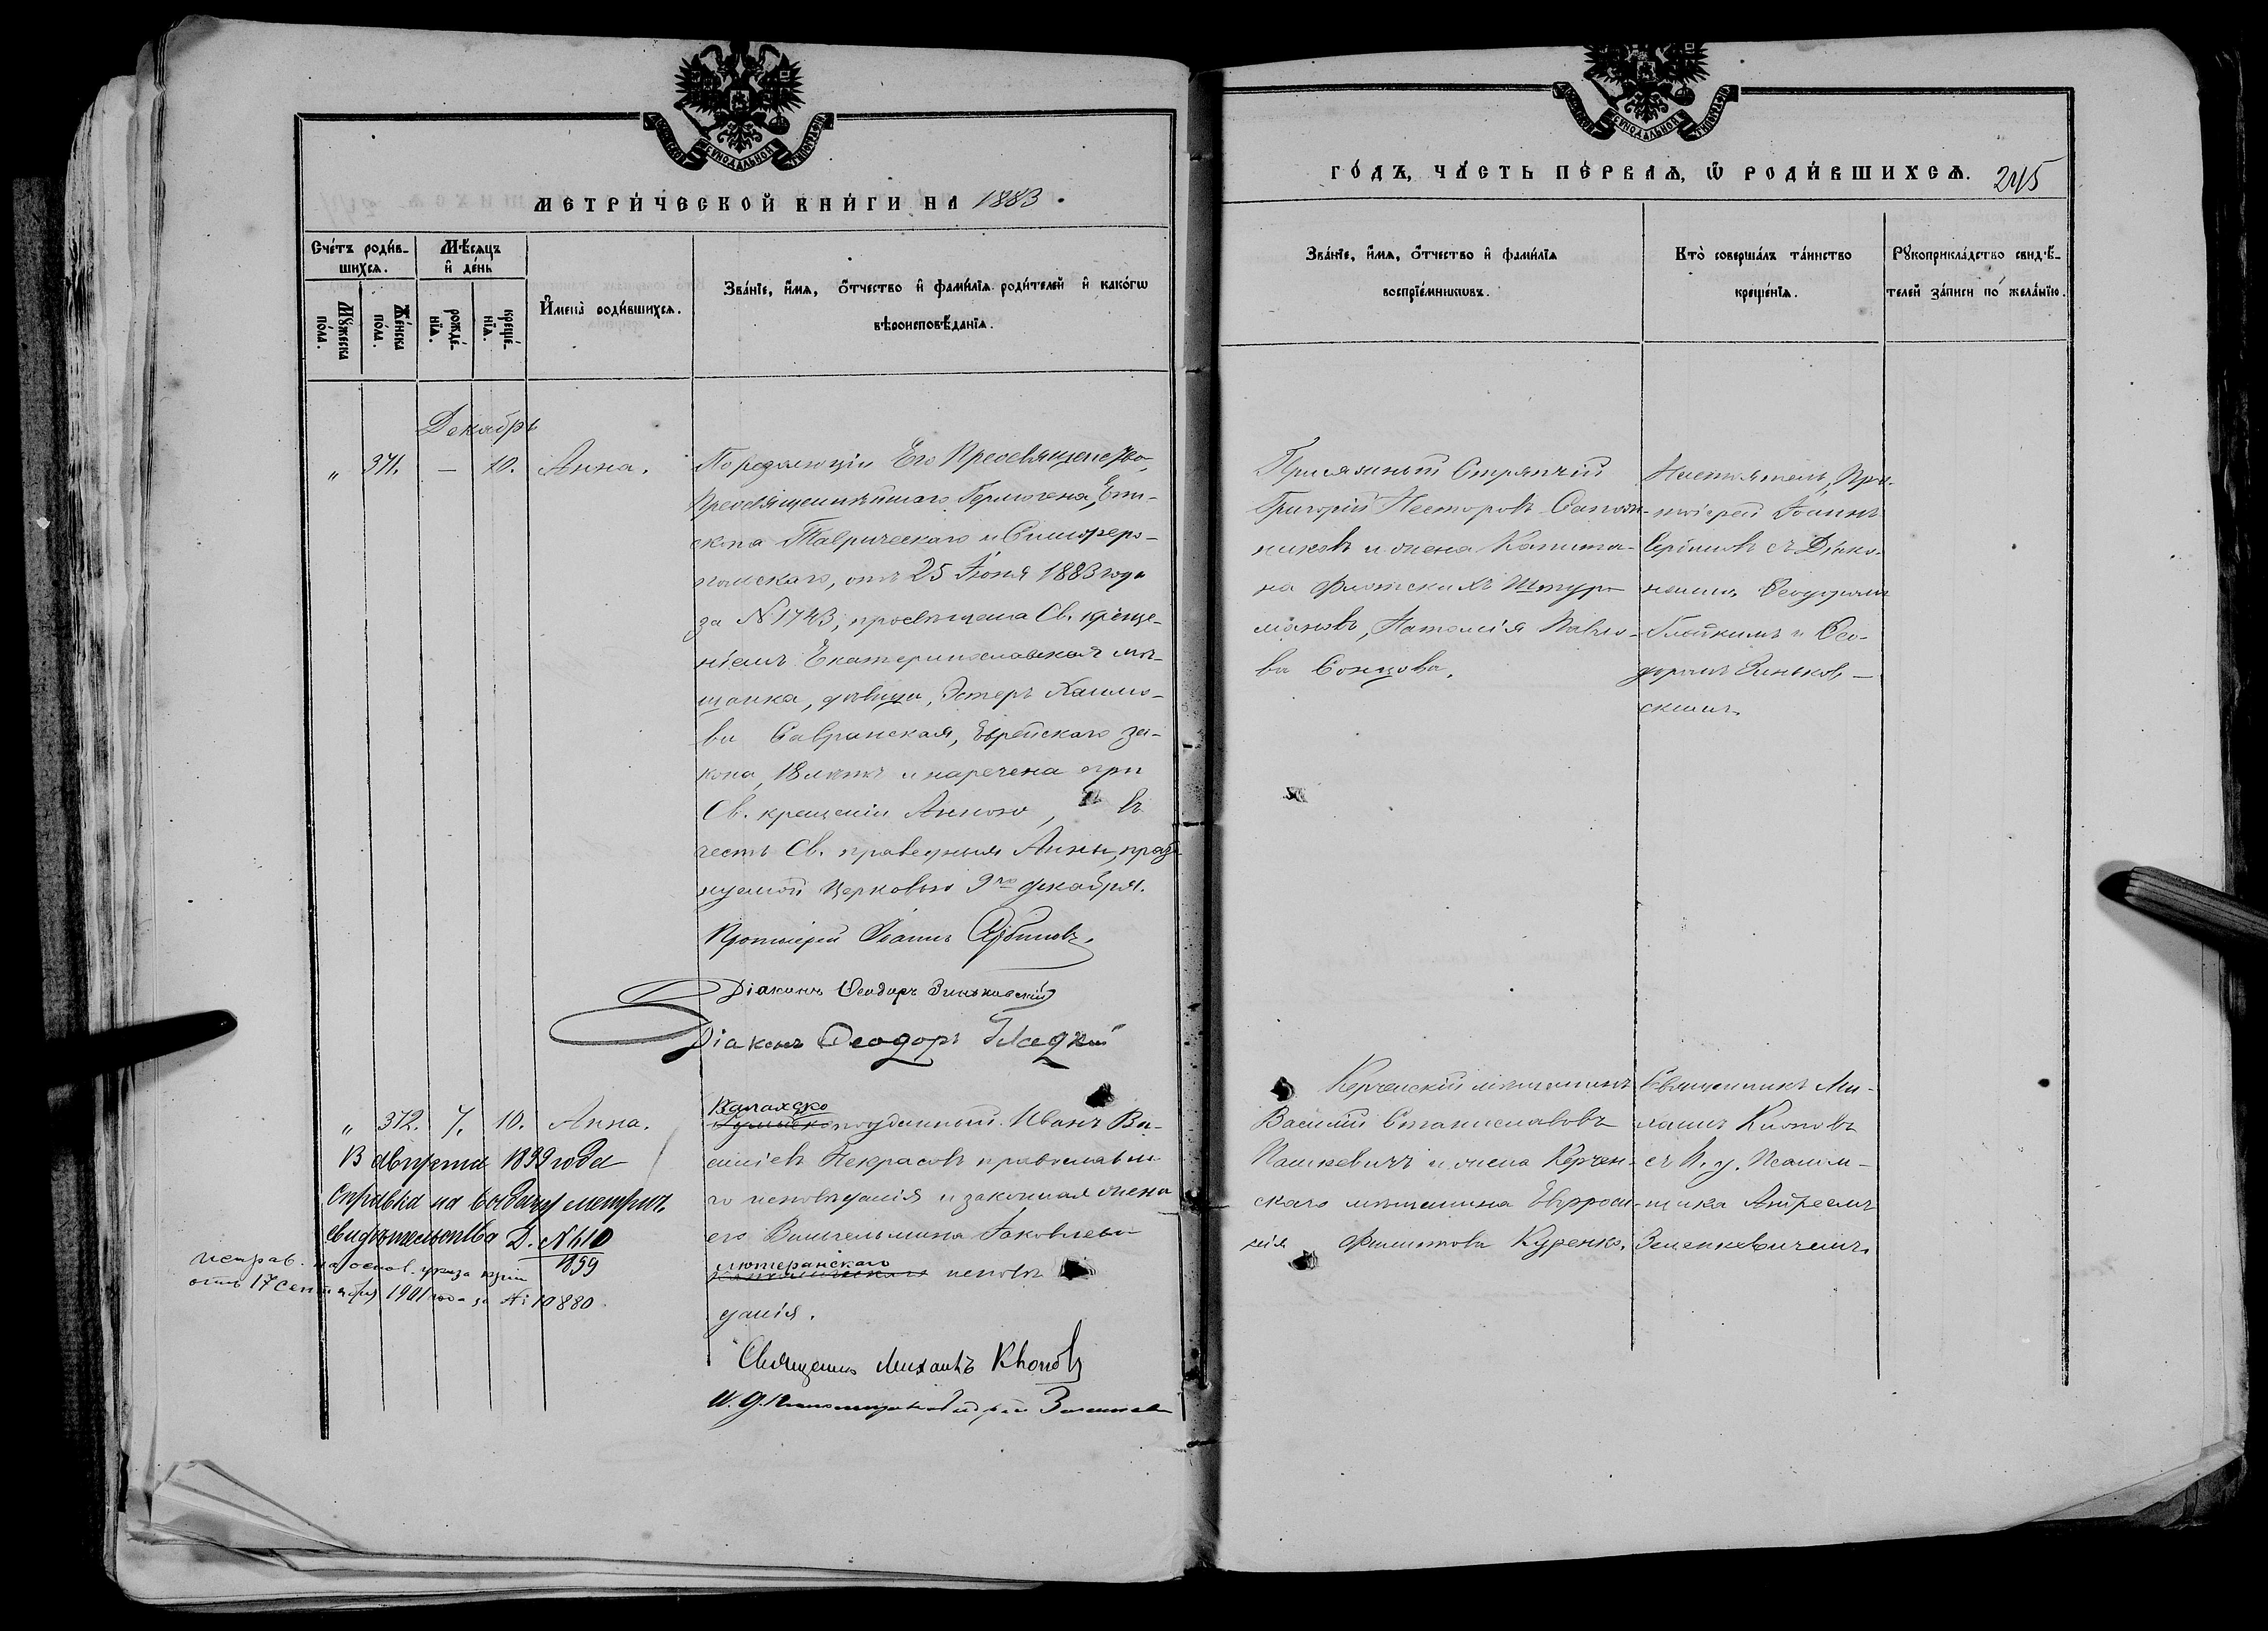 МЕТРИ́ЧЕСКОЙ КНИ́ГИ НА 1883.
Сче́тъ роди́в-
шихсѧ.
Мѣ́сѧцъ
и҆ де́нь
Мꙋ́жеска
по́ла.
Же́нска
по́ла.
рожде́-
нїѧ.
креще́-
нїѧ.
И҆мена̀ роди́вшихсѧ.
Зва́нїе, и҆́мѧ, ѻ҆́тчество и҆ фами́лїѧ роди́телей и҆ како́гѡ
вѣроисповѣ́данїѧ.
Декабрь
„ 371. — 10. Анна.
По резолюціи Его Преосвященства,
Преосвященнѣйшаго Гермогена, Епи-
скопа Таврическаго и Симферо-
польскаго, отъ 25 Іюня 1883 года
за № 1743, просвѣщена Св. креще-
ніемъ Екатеринославская мѣ-
щанка, дѣвица, Эстеръ Хаимо-
ва Савранская, Еврейскаго за-
кона, 18 лѣтъ и наречена при
Св. крещеніи Анною, въ
честь Св. праведныя Анны, празд
нуемой Церковью 9го декабря.
Протоіерей Іоаннъ Сербиновъ.
Діаконъ Ѳеодоръ Зиньковскій
Діаконъ Ѳеодоръ Гладкій
„ 372. 7. 10. Анна.
Валахско
подданный Иванъ Ва-
сильевъ Некрасовъ православна
го исповѣданія и законная жена
его Вильгельмина Яковлева
лютеранскаго
исповѣ
данія.
Священникъ Михаилъ Кноповъ
И. д. Псаломщика Андрей
13 августа 1899 года
справка на выдачу метрич.
свидѣтельства Д. № 610
1899
исправ. на основ. указа кзіи
отъ 17 сентября 1901 года за № 10880
ГО́ДЪ, ЧА́СТЬ ПЕ́РВАѦ, Ѽ РОДИ́ВШИХСѦ. 245
Зва́нїе, и҆́мѧ, ѻ҆́тчество и҆ фами́лїѧ
воспрїе́мникѡвъ.
Кто̀ соверша́лъ та́инство
креще́нїѧ.
Рꙋкоприкла́дство свидѣ́-
телей за́писи по жела́нїю.
Присяжный Стряпчій
Григорій Несторовъ Сапож-
никовъ и жена Капита-
на Флотскихъ Штур-
мановъ, Наталія Павло-
ва Сонцова.
Настоятель, Про-
тоіерей Іоаннъ
Сербиновъ съ Діако-
нами, Ѳеодоромъ
Гладкимъ и Ѳео-
доромъ Зиньков-
скимъ.
Керченскій мѣщанинъ
Василій Станиславовъ
Пашкевичъ и жена Керчен-
скаго мѣщанина Евфроси-
нія Филиппова Куренко.
Священникъ Ми-
хаилъ Кноповъ
съ И. д. Псалом-
щика Андреемъ
Зеленкевичемъ.